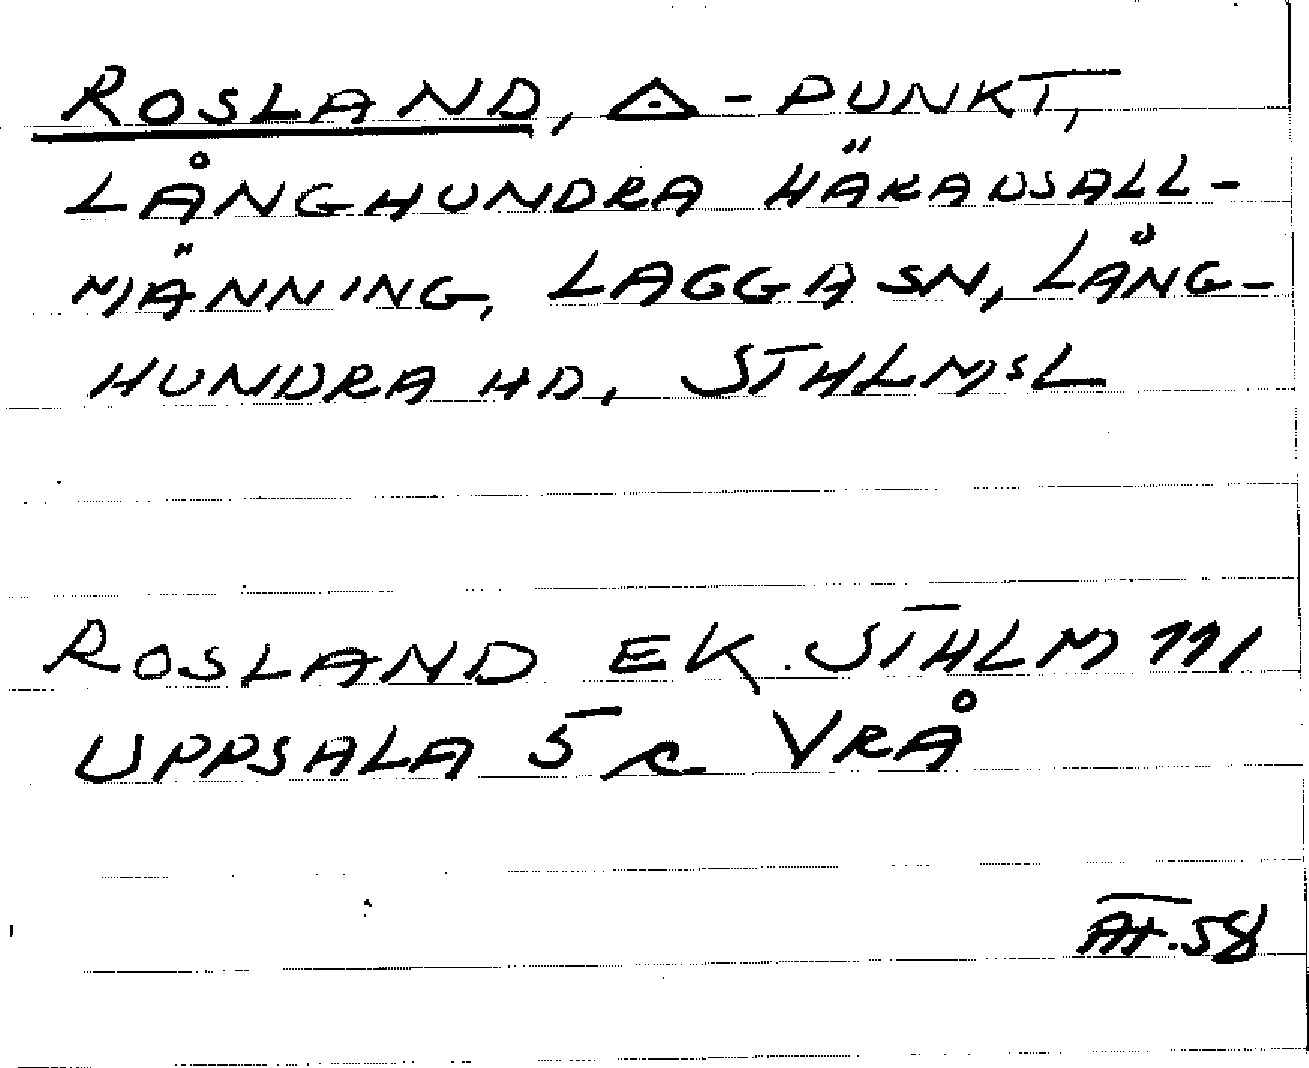 ROSLAND, △-PUNKT,
LÅNGHUNDRA HÄRADSALL-
MÄNNING, LAGGA SN, LÅNG-
HUNDRA HD, STHLMSL
ROSLAND EK. STHLM 111
UPPSALA 5 c VRÅ
58